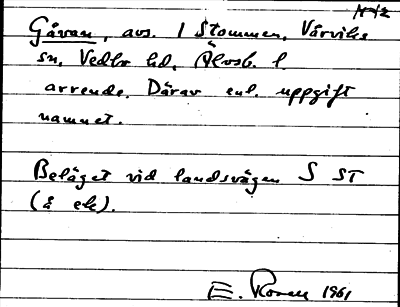 Gåvan, avs. 1 Stommen, Vårviks
sn, Vedbo hd, Älvsb. l.
arrende. Därav enl. uppgift
namnet.
Beläget vid landsvägen S ST
(å ek).
E. 1961